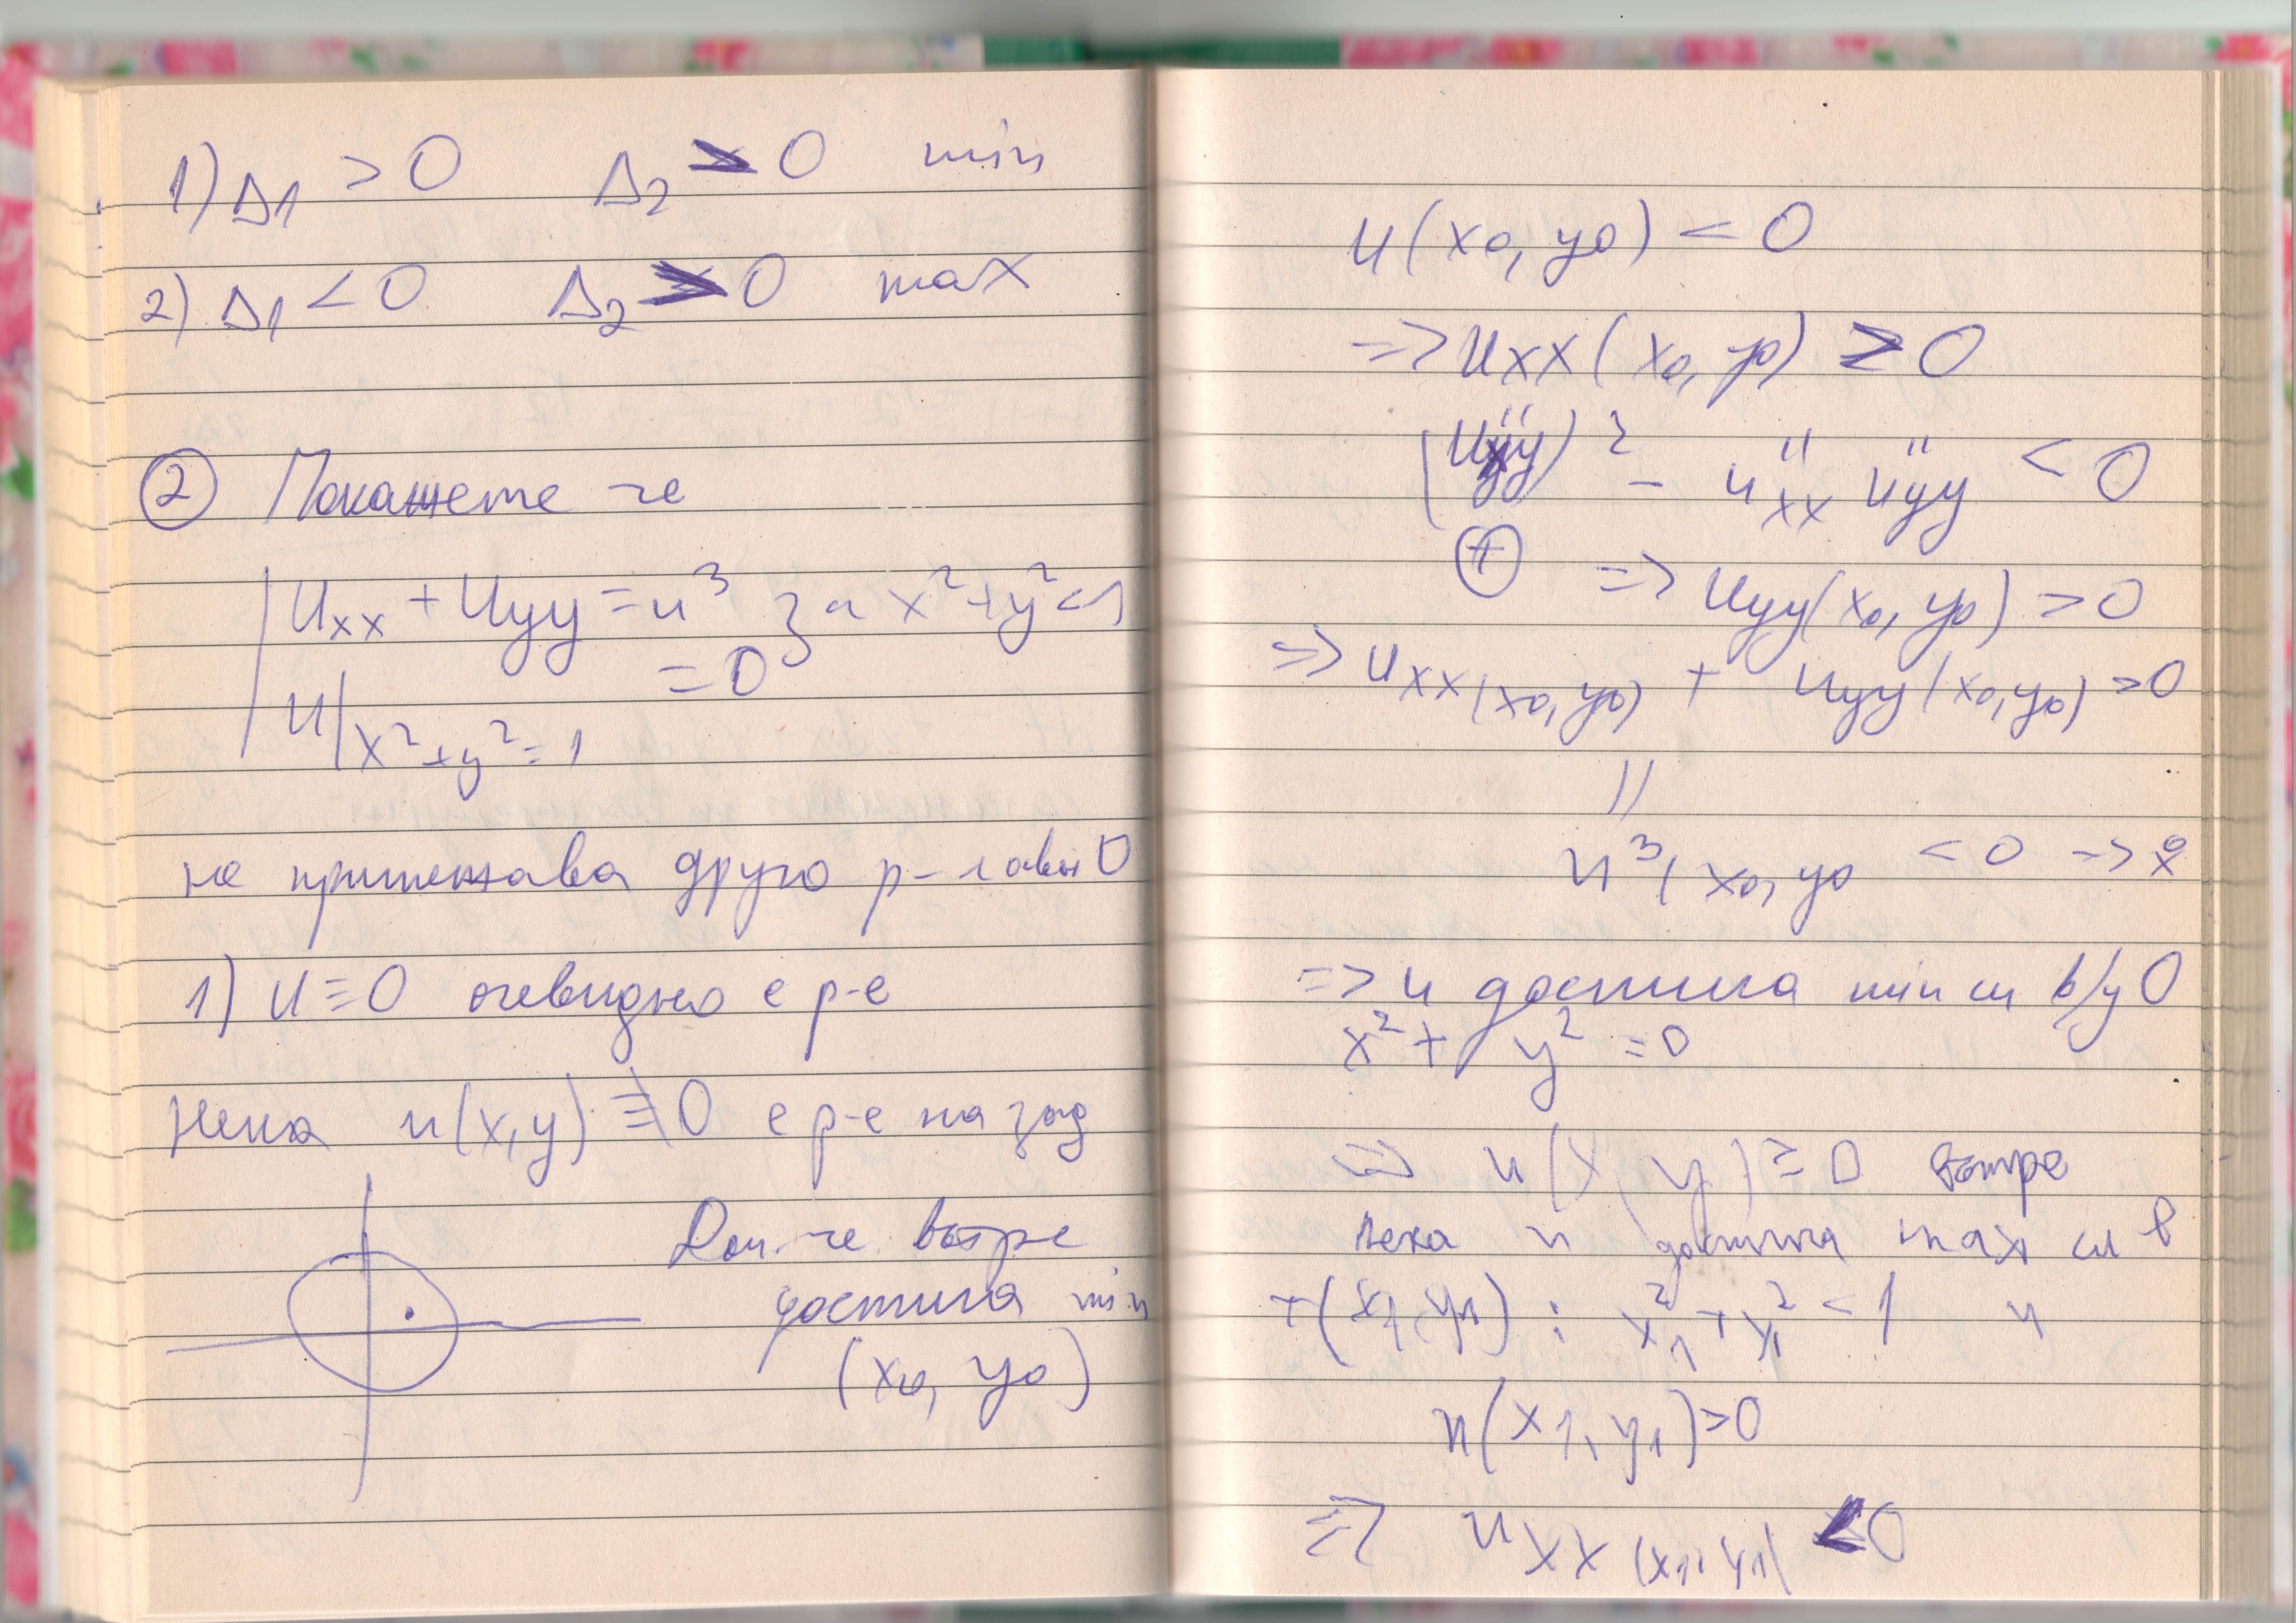 1) Δ1 > 0 Δ2 > 0 min
2) Δ1 < 0 Δ2 > 0 max
② Покажете че
Uxx + Uyy = u³ за x² + y² < 1
U|x²+y²=1 = 0
не притежава друго р-
1) U ≡ 0 очевидно е р-е
Нека u(x,y) ≢ 0 е р-е на зад
Доп. че вътре
достига min
(x0, y0)
u(x0, y0) < 0
=> uxx(x0, y0) ≥ 0
(u''xy)² - u''xx u''yy < 0
⊕ => uyy(x0, y0) > 0
=> uxx(x0, y0) + uyy(x0, y0) > 0
||
u³(x0, y0 < 0 ->
=> u достига min си в/у 0
x² + y² = 0
=> u(x, y) ≥ 0 вътре
Нека u достига max си в
т(x1, y1) : x1² + y1² < 1 и
u(x1, y1) > 0
=> uxx(x1, y1) ≤ 0